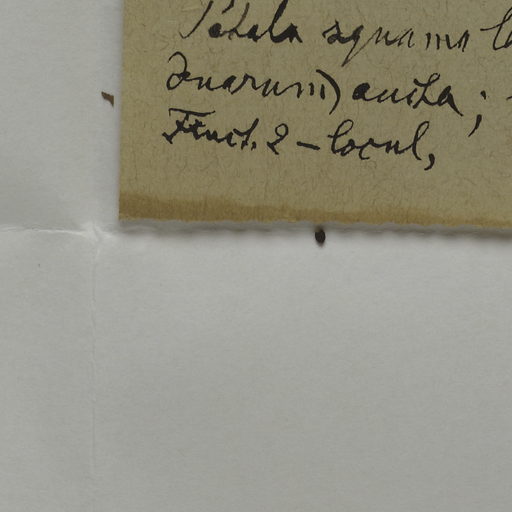 Petala squama
duarum) aucta;
Fruct. 2-locul,